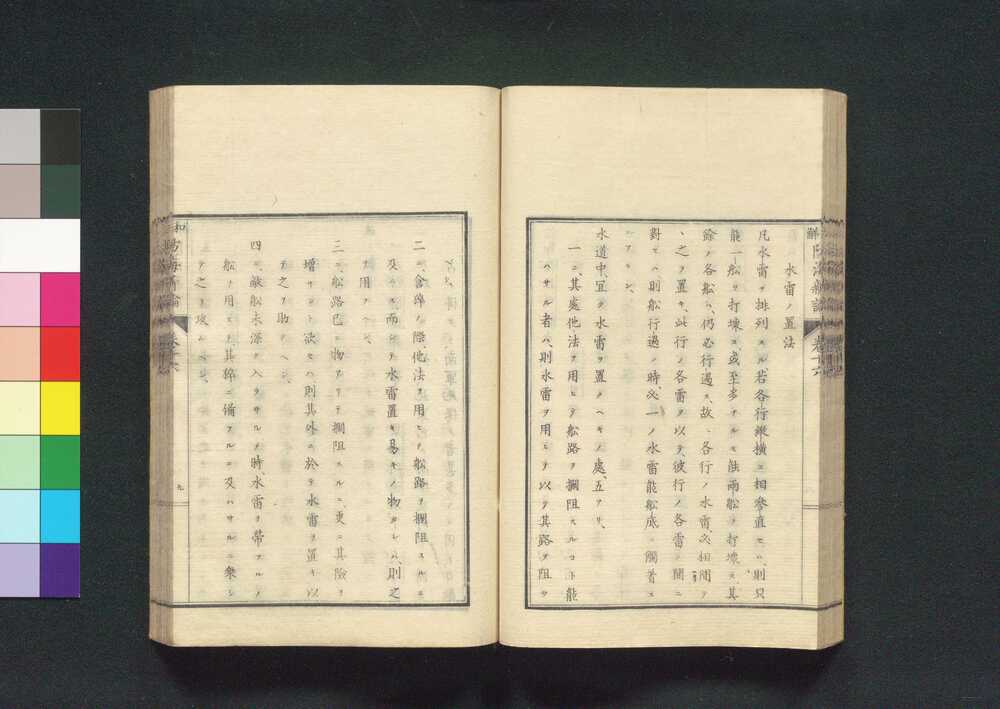 水雷ノ置法
凡水雷ヲ排列スル若各行縱橫ニ相參直セハ、則只
能一船ヲ打壊ス、或至多ナルモ能兩船ヲ打壊ス、其
餘ノ各船ハ、仍必行過ス、故ニ各行ノ水雷必相間テ
之ヲ置キ、此行ノ各雷ヲ以テ、彼行ノ各雷ノ間ニ
對セハ則船行過ノ時、必一ノ水雷能船底ニ觸着ス
水道中、宜ク水雷ヲ置クヘキノ處、五アリ、
一ニ、其處他法ヲ用ヒテ船路ヲ攔阻スルコト能
ハサル者ハ、則水雷ヲ用ヒテ以テ其路ヲ阻ツ
二ニ、倉卒ノ際他法ヲ用ヒテ船路ヲ攔阻スルニ
及ハス、而シテ水雷置キ易キノ物ナレハ、則之
ヲ用フヘシ、
三ニ、船路已ニ物アリテ攔阻スルニ、更ニ其險ヲ
增サント欲セハ則其外ニ於テ水雷ヲ置キ以
テ之ヲ助クヘシ、
四ニ、敵船未深ク入ラサルノ時、水雷ヲ帶フルノ
船ヲ用ヒ、其猝ニ備フルニ及ハサルニ乘シ
テ之ヲ攻ムヘシ、
九